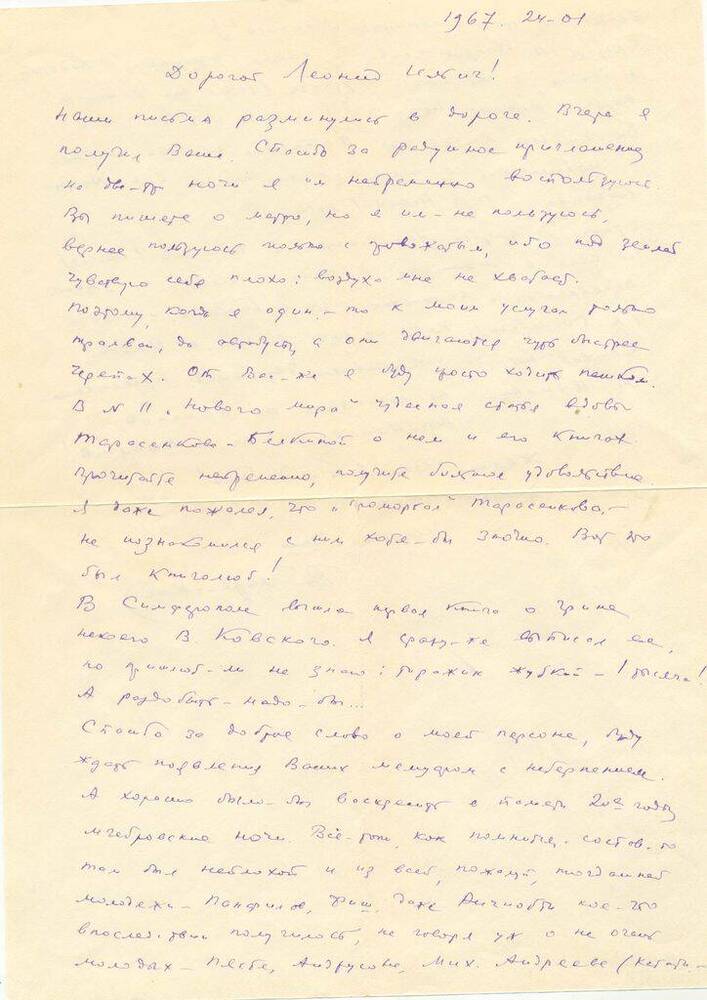 1967. 24-01
Дорогой Леонид Ильич!
Наши письма разминулись в дороге. Вчера я
получил Ваше. Спасибо за радушное приглашение
на две-три ночи я им непременно воспользуюсь.
Вы пишете о метро, но я им - не пользуюсь,
вернее пользуюсь только с провожатым, ибо под землей
чувствую себя плохо: воздуха мне не хватает.
Поэтому, когда я один - то к моим услугам только
трамваи, да автобусы, а они двигаются чуть быстрее
черепах. От Вас-же я буду просто ходить пешком.
В № 11 „Нового мира" чудесная статья вдовы
Тарасенкова - Белкиной о нем и его книгах.
Прочитайте непременно, получите большое удовольствие.
Я даже пожалел, что Тарасенкова, -
не познакомился с ним хотя-бы заочно. Вот это
был книголюб!
В Симферополе вышла первая книга о Грине
некоего В. Ковского. Я сразу-же выписал ее,
но пришлют-ли не знаю: тиражик жуткий - 1 тысяча!
А раздобыть - надо-бы...
Спасибо за доброе слово о моей персоне, буду
ждать появления Ваших мемуаров с нетерпением.
А хорошо было-бы воскресить в памяти 20е годы
мгебровские ночи. Всё-таки, как помнится, состав-то
там был неплохой и из всей, пожалуй, тогдашней
молодежи - Панфилов, Фиш, даже Ричиотти кое-что
впоследствии получилось, не говоря уж о не очень
молодых - Пясте, Андрусоне, Мих. Андрееве (кстати -